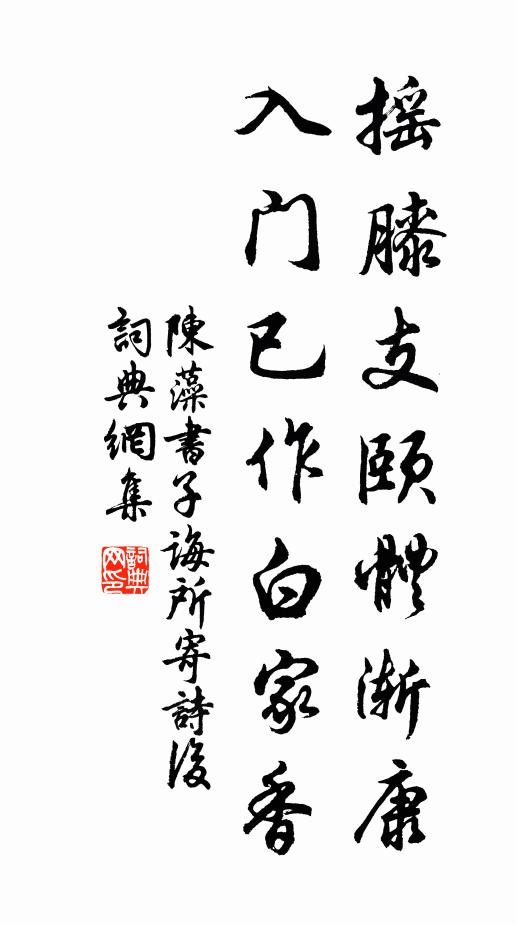 摇膝支颐體渐康
入门已作白家香
陳藻書子誨所寄詩後
詞典網集
詞典网印